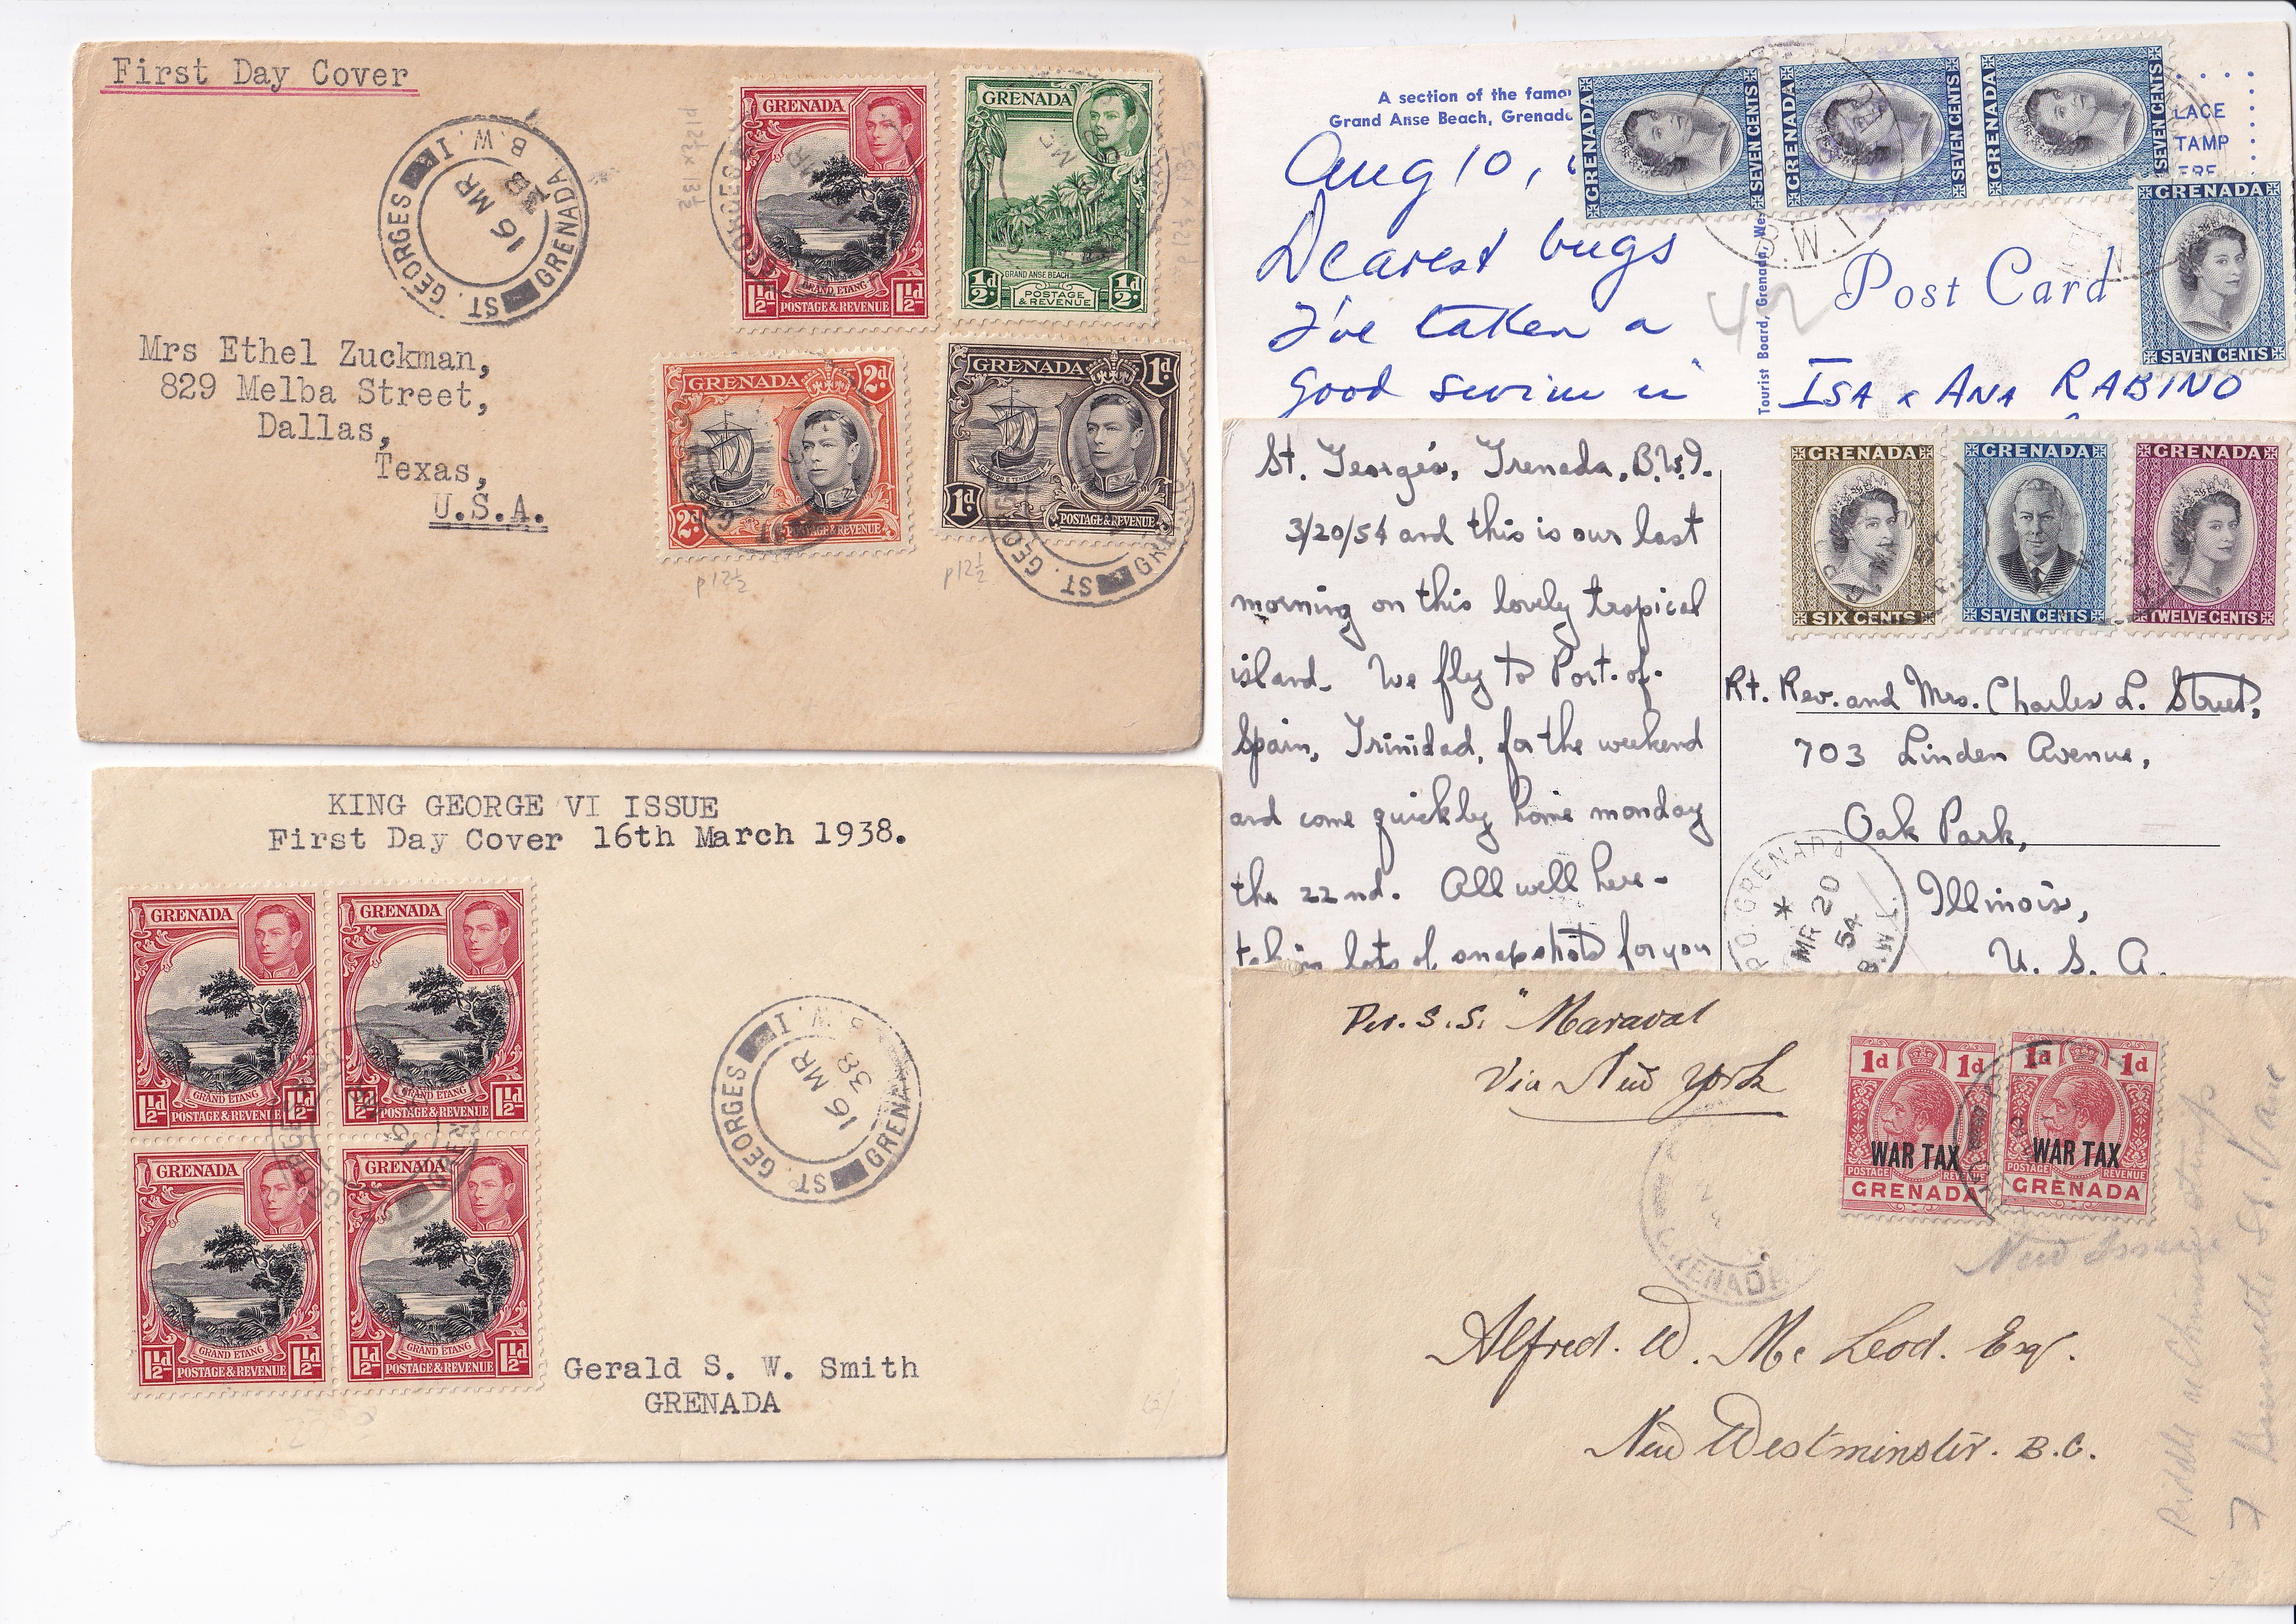 First Day Cover
ST. GEORGES GRENADA B.W.I.
16 MR
38
p12½ x 13½
p12½ x 13½
GRENADA
GRAND ETANG
1½d 1½d
POSTAGE & REVENUE
GRENADA
GRAND ANSE BEACH
½d ½d
POSTAGE
& REVENUE
GRENADA 2d
2d POSTAGE & REVENUE
GRENADA 1d
1d POSTAGE & REVENUE
ST. GEORGES GRENADA
p12½
p12½
Mrs Ethel Zuckman,
829 Melba Street,
Dallas,
Texas,
U.S.A.
KING GEORGE VI ISSUE
First Day Cover 16th March 1938.
GRENADA
GRAND ETANG
1½d 1½d
POSTAGE & REVENUE
GRENADA
GRAND ETANG
1½d 1½d
POSTAGE & REVENUE
GRENADA
GRAND ETANG
1½d 1½d
POSTAGE & REVENUE
GRENADA
GRAND ETANG
1½d 1½d
POSTAGE & REVENUE
ST. GEORGES GRENADA B.W.I.
16 MR
38
Gerald S. W. Smith
GRENADA
A section of the famo
Grand Anse Beach, Grenada
GRENADA SEVEN CENTS
GRENADA SEVEN CENTS
GRENADA SEVEN CENTS
LACE
TAMP
ERE
B.W.I.
GRENADA
SEVEN CENTS
Aug 10,
Dearest bugs
I've taken a
good swim in
42
Post Card
Tourist Board, Grenada, Wes
ISA & ANA RABINO
St. George's, Grenada, B.W.I.
3/20/54 and this is our last
morning on this lovely tropical
island. We fly to Port-of-
Spain, Trinidad, for the weekend
and come quickly home monday
the 22nd. All well here -
taking lots of snapshots for you
GRENADA
SIX CENTS
GRENADA
SEVEN CENTS
GRENADA
TWELVE CENTS
Rt. Rev. and Mrs. Charles L. Street,
703 Linden Avenue,
Oak Park,
Illinois,
U. S. A.
G.P.O. GRENADA B.W.I.
MR 20
54
Per. S.S. "Maraval
Via New York
1d 1d
WAR TAX
POSTAGE REVENUE
GRENADA
1d 1d
WAR TAX
POSTAGE REVENUE
GRENADA
GRENADA
New Issue
Alfred. W. Mc Leod. Esq.
New Westminster. B.C.